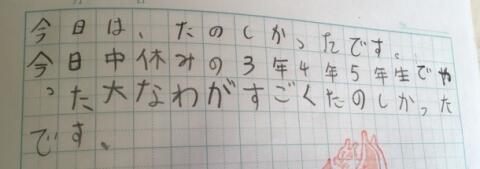 今日は、たのしかったです。
今日中休みの3年4年5年生でや
った大なわがすごくたのしかった
です。